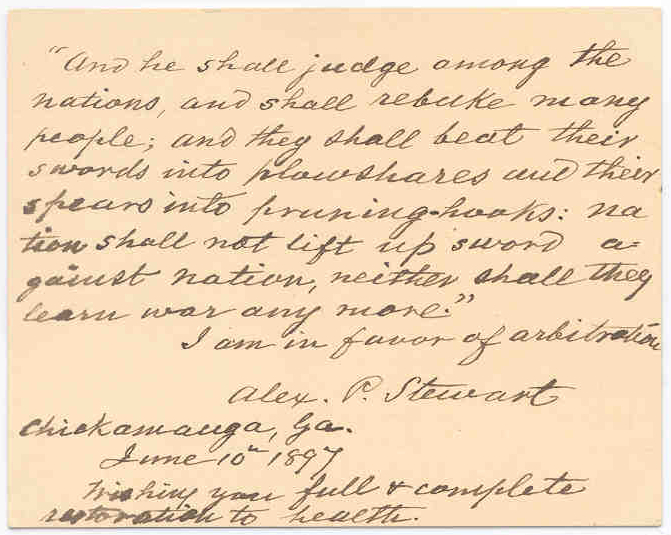 "And he shall judge among the
nations, and shall rebuke many
people; and they shall beat their
swords into plowshares and their
spears into pruning-hooks: na
tion shall not lift up sword a-
gainst nation, neither shall they
learn war any more."
I am in favor of arbitration
Alex. P. Stewart
Chickamauga, Ga.
June 10th 1897
Wishing you full & complete
restoration to health.